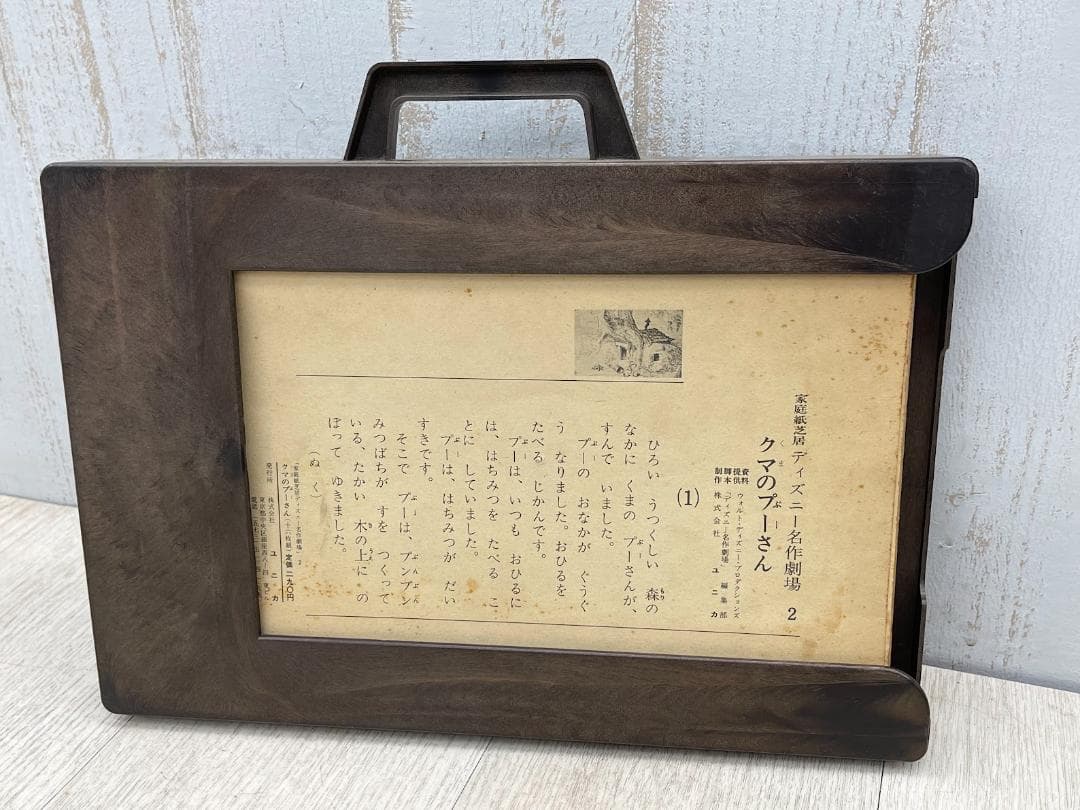 家庭紙芝居 ディズニー名作劇場 2
クマのプーさん
資料提供 ウォルト・ディズニー・プロダクションズ
脚本 「ディズニー名作劇場」編集部
制作 株式会社 ユニカ
(1)
ひろい うつくしい 森の
なかに くまの プーさんが、
すんで いました。
プーの おなかが ぐうぐ
う なりました。おひるを
たべる じかんです。
プーは、いつも おひるに
は、はちみつを たべる こ
とに していました。
プーは、はちみつが だい
すきです。
そこで プーは、ブンブン
みつばちが すを つくって
いる、たかい 木の上に の
ぼって ゆきました。
(ぬく)
「家庭紙芝居ディズニー名作劇場」2
クマのプーさん(十二枚組)定価二九〇円
発行所 株式会社 ユニカ